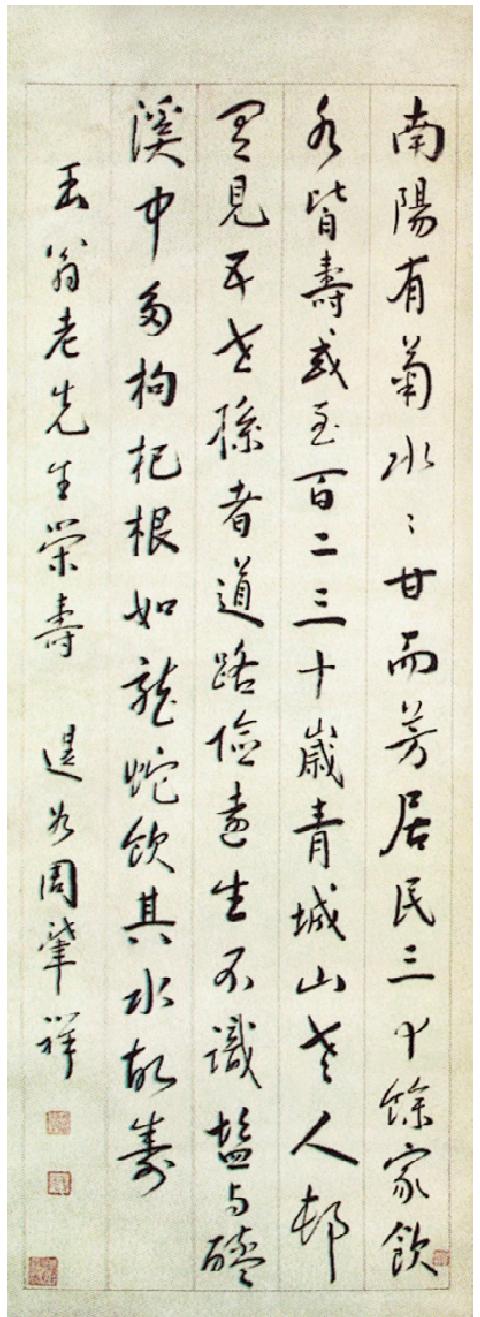 南陽有菊水〻甘而芳居民三十餘家飲
水皆壽或至百二三十歲青城山老人邨
見五世孫者道路險遠生不識鹽与醯
溪中多枸杞根如龍蛇飲其水故壽
翁老先生榮壽 退翁周肇祥